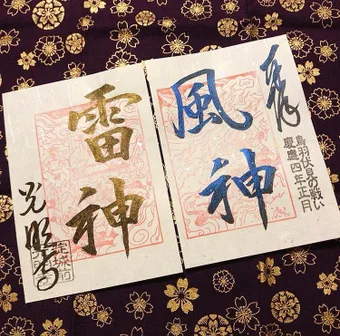 雷神
光明寺
風神
鳥羽伏見の戦い
慶應四年正月